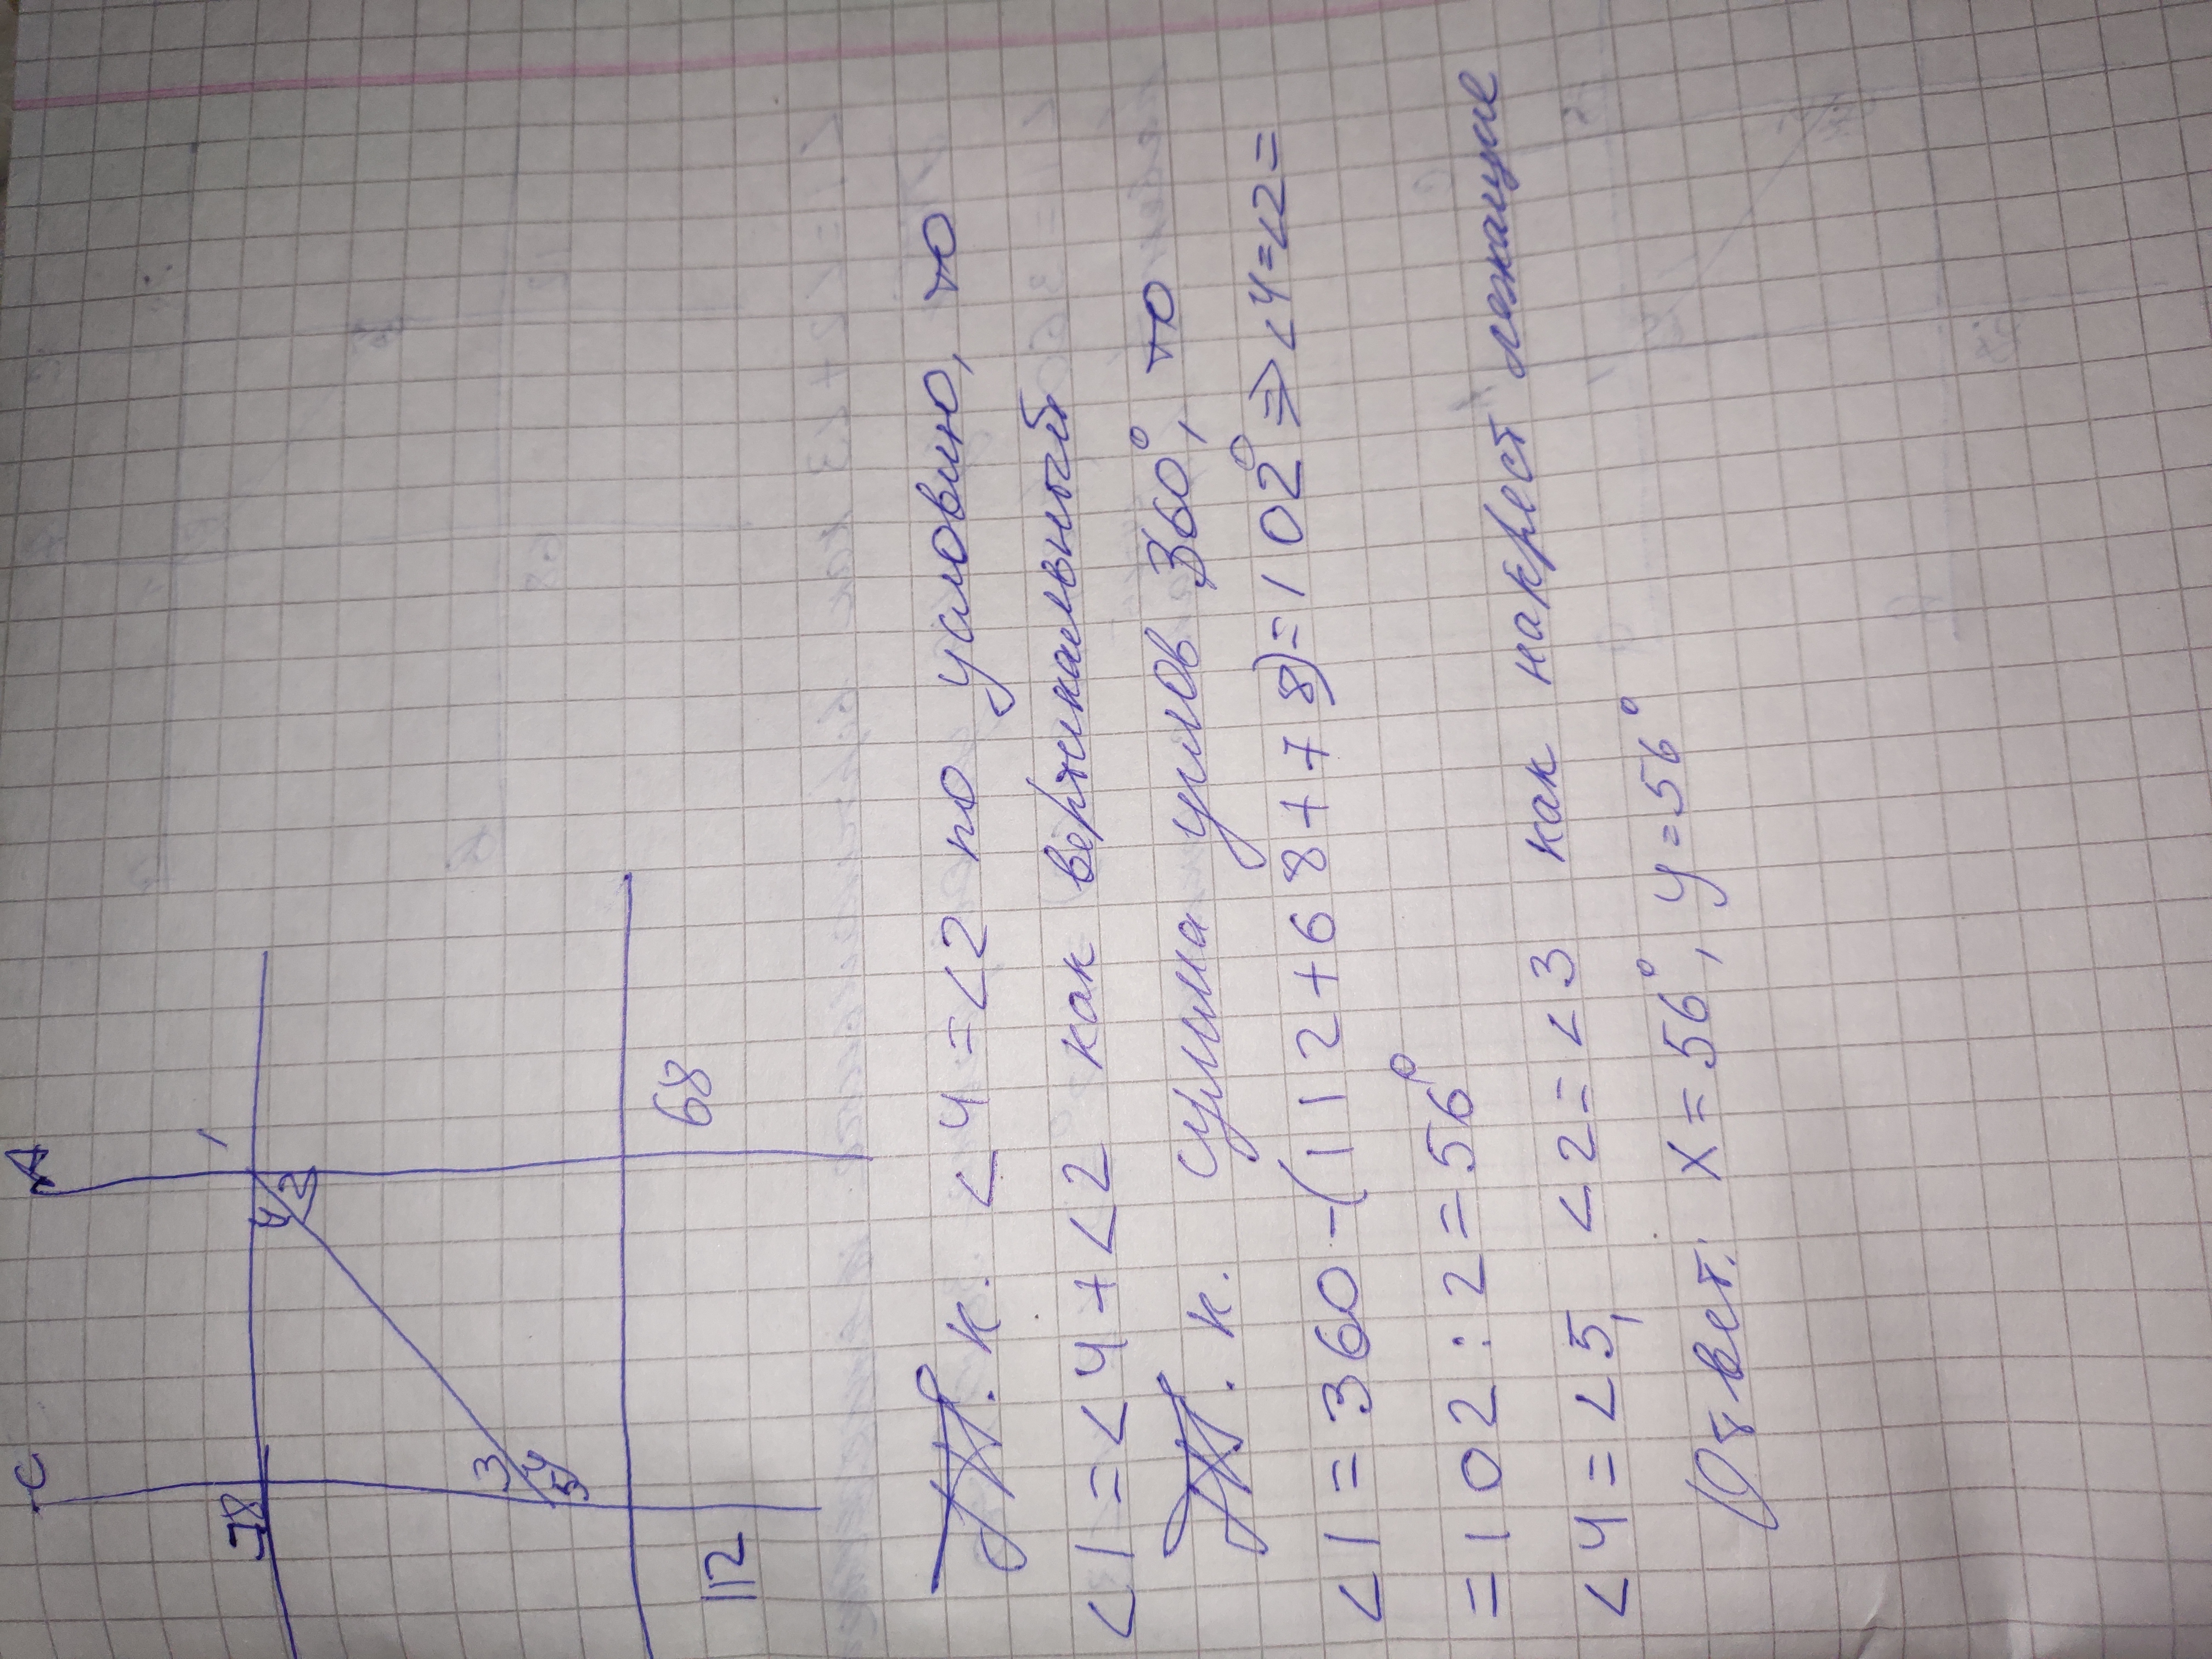 C
A
78
1
4
2
3
4
5
112
68
Т. к. <4 = <2 по условию, то
<1 = <4 + <2 как вертикальный
Т. к. сумма углов 360°, то
<1 = 360 - (112 + 68 + 78) = 102° => <4 = <2 =
= 102 : 2 = 56°
<4 = <5, <2 = <3 как накрест лежащие
Ответ: x = 56°, y = 56°